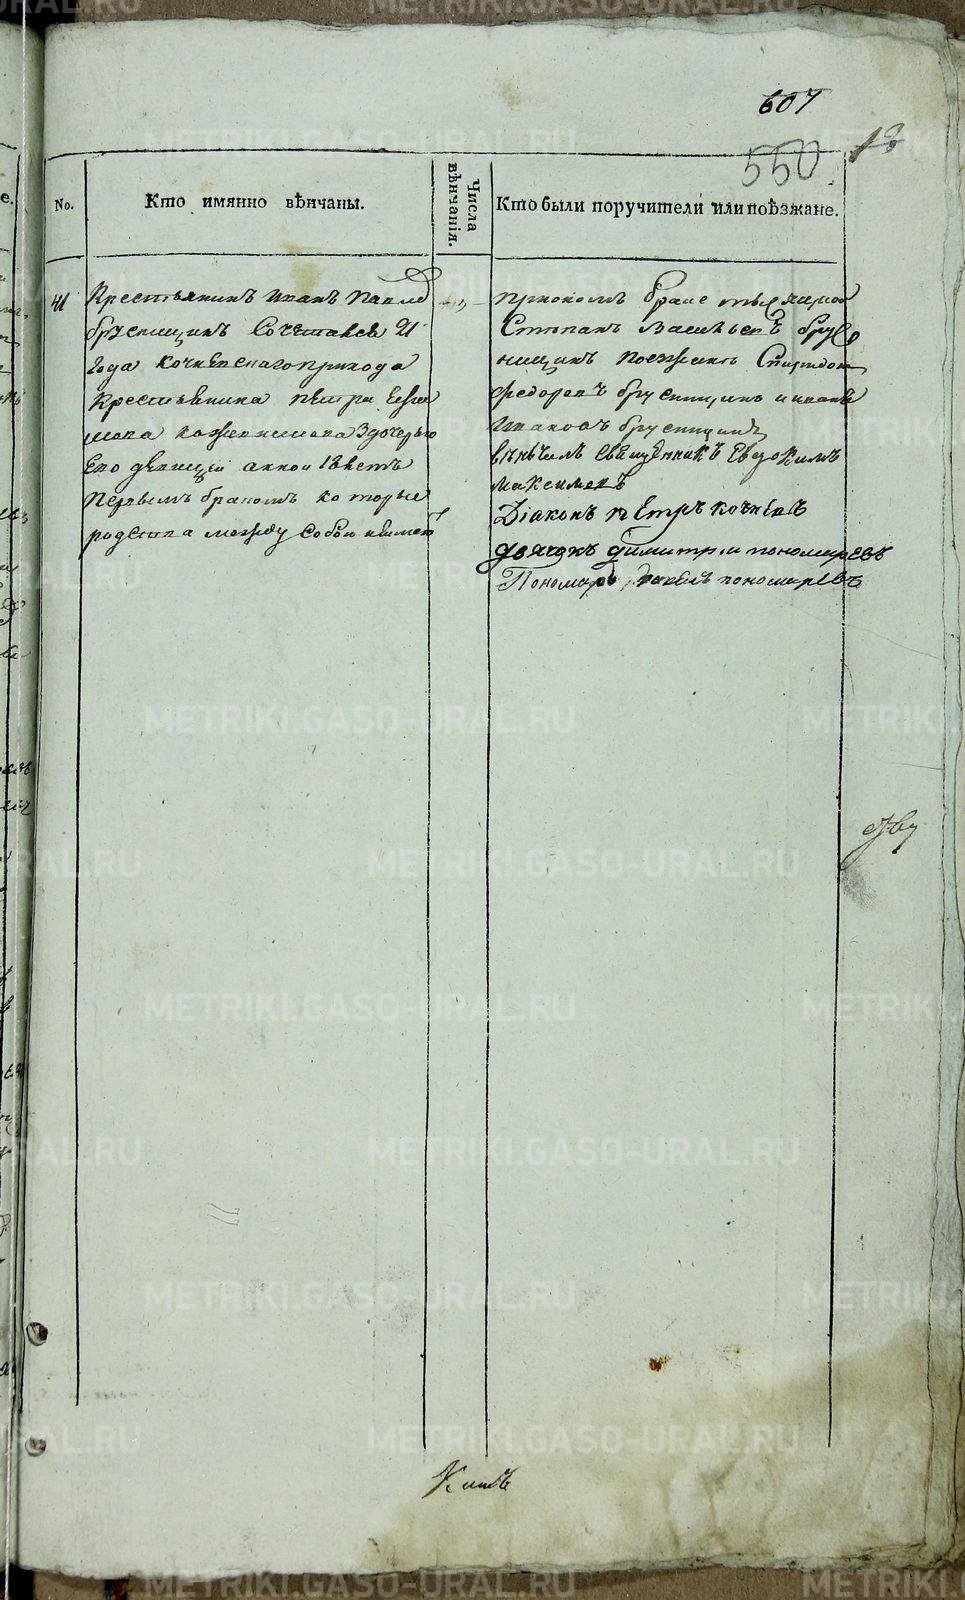 607
550
13
No.
Кто имянно вѣнчаны.
Числа вѣнчанія.
Кто были поручители или поѣзжане.
41
Крестьянинъ Иванъ Павло
брусницинъ Сочетался 21
года кочневскаго прихода
крестьянина петра
здочерью
его девицей анной 18 летъ
первымъ бракомъ которые
родства между собою неимеют
-„-
приономъ браке тысяцкой
Стѣпанъ Васильевъ брус
ницинъ поезжанѣ Спиридонъ
федоровъ брусницинъ и иванъ
Ивановъ брусницинъ
венчалъ священникъ Евдокимъ
Максимовъ
Дiаконъ петръ кочневъ
дьячокъ димитрий пономаревъ
Пономарь павелъ пономаревъ
METRIKI.GASO-URAL.RU